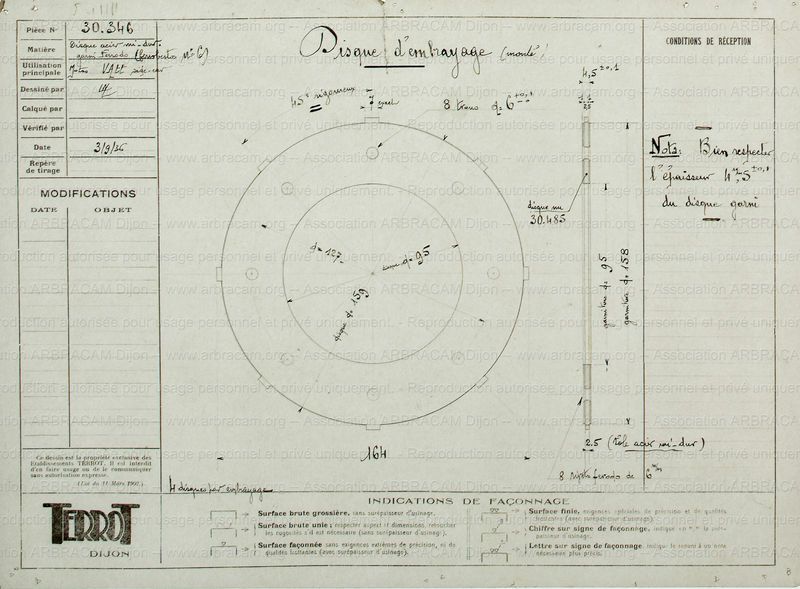 Pièce N° 30.346
Matière Disque acier mi-dur
garni ferodo
Utilisation principale
Dessiné par
Calqué par
Vérifié par
Date 3/9/36
Repère de tirage
MODIFICATIONS
DATE OBJET
Disque d'embrayage (monté)
45° rigoureux
8 trous d= 6 +0,1
4,5 ±0,1
d= 127
disque d= 95
disque d= 159
164
disque nu
30.485
garniture d= 95
garniture d= 158
2.5 (tôle acier mi-dur)
8 rivets ferodo de 6 m/m
4 disques par embrayage
CONDITIONS DE RÉCEPTION
Nota: Bien respecter
l'épaisseur 4 m/m 5 ±0,1
du disque garni
Ce dessin est la propriété exclusive des
Etablissements TERROT. Il est interdit
d'en faire usage ou de le communiquer
sans autorisation expresse.
(Loi du 11 Mars 1902.)
TERROT
DIJON
INDICATIONS DE FAÇONNAGE
Surface brute grossière, sans surépaisseur d'usinage.
Surface brute unie ; respecter aspect et dimensions, retoucher
les rugosités s'il est nécessaire (sans surépaisseur d'usinage).
Surface façonnée sans exigences extrêmes de précision, ni de
qualités lustrantes (avec surépaisseur d'usinage).
Surface finie, exigences spéciales de précision et de qualités
lustrantes (avec surépaisseur d'usinage).
Chiffre sur signe de façonnage, indique en m/m la surépaisseur d'usinage.
Lettre sur signe de façonnage, indique le renvoi à une note
nécessaire plus précise.
www.arbracam.org -- Association ARBRACAM Dijon -- Reproduction autorisée pour usage personnel et privé uniquement.